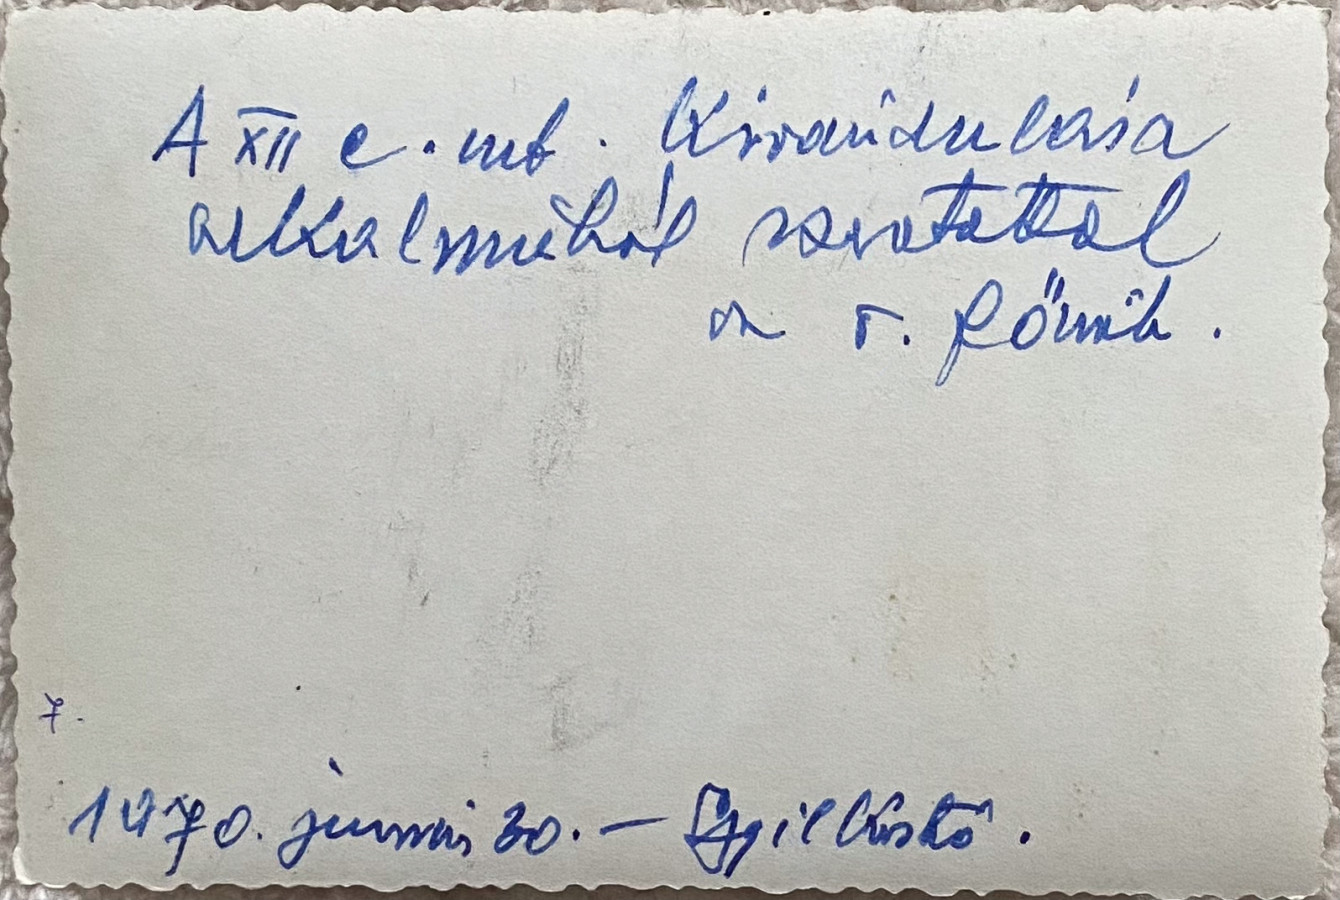 A XII c. mb. Kirándulása
alkalmából szeretettel
a r. főnök.
7.
1970. június 30. — Gyilkostó.